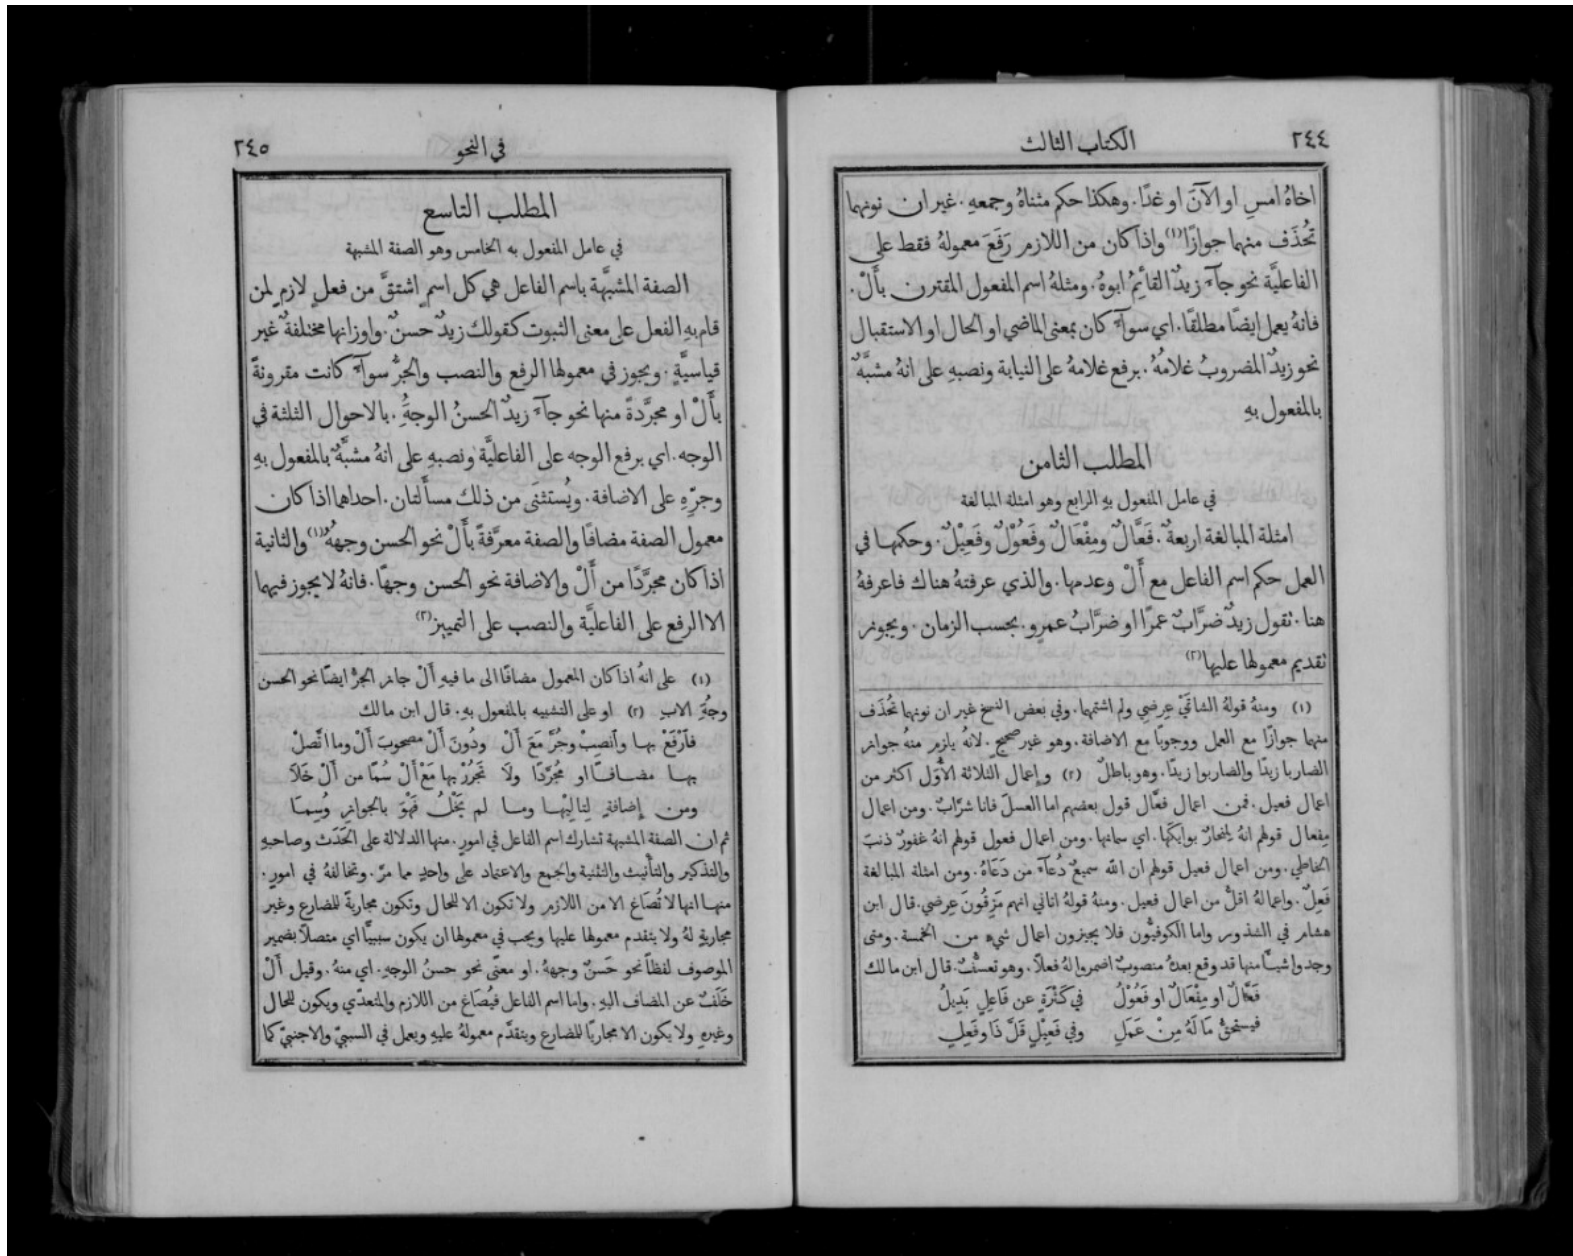 ٢٤٤
الكتاب الثالث
اخاهُ امسِ او الآنَ او غدًا. وهكذا حكم مثناهُ وجمعهِ. غير ان نونهما
تُحذَف منهما جوازًا(١) واذا كان من اللازم رَفَعَ معمولهُ فقط على
الفاعليَّة نحو جآءَ زيدٌ القائِمُ ابوهُ. ومثلهُ اسم المفعول المقترن بأَلْ.
فانهُ يعمل ايضًا مطلقًا. اي سوآءٌ كان بمعنى الماضي او الحال او الاستقبال
نحو زيدٌ المضروبُ غلامُهُ. برفع غلامهُ على النيابة ونصبهِ على انهُ مشبَّهٌ
بالمفعول بهِ
المطلب الثامن
في عامل المفعول بهِ الرابع وهو امثلة المبالغة
امثلة المبالغة اربعةٌ. فَعَّالٌ ومِفْعَالٌ وفَعُوْلٌ وفَعِيْلٌ. وحكمها في
العمل حكم اسم الفاعل مع أَلْ وعدمها. والذي عرفتهُ هناك فاعرفهُ
هنا. تقول زيدٌ ضرَّابٌ عمرًا او ضرَّابُ عمرٍو. بحسب الزمان. ويجوز
تقديم معمولها عليها(٢)
(١) ومنهُ قولهُ الشاتمَيْ عِرضي ولم اشتمهما. وفي بعض النسخ غير ان نونهما تُحذَف
منهما جوازًا مع العمل ووجوبًا مع الاضافة. وهو غير صحيح. لانهُ يلزم منهُ جواز
الضاربا زيدًا والضاربوا زيدًا. وهو باطلٌ (٢) وإعمال الثلاثة الأُوَل اكثر من
اعمال فعيل. فمن اعمال فعَّال قول بعضهم اما العسلَ فانا شرَّابٌ. ومن اعمال
مِفعال قولهم انهُ لِمنحارٌ بوايكَها. اي سمانها. ومن اعمال فعول قولهم انهُ غفورٌ ذنبَ
الخاطي. ومن اعمال فعيل قولهم ان الله سميعٌ دُعآءَ من دَعَاهُ. ومن امثلة المبالغة
فَعِلٌ. واعمالهُ اقلُّ من اعمال فعيل. ومنهُ قولهُ اتاني انهم مَزِقُونَ عِرضي. قال ابن
هشام في الشذور واما الكوفيُّون فلا يجيزون اعمال شيءٍ من الخمسة. ومتى
وجدوا شيئًا منها قد وقع بعدهُ منصوبٌ اضمروا لهُ فعلاً. وهو تعسُّفٌ. قال ابن مالك
فَعَّالٌ او مِفْعَالٌ او فَعُوْلُ في كَثْرَةٍ عن فَاعِلٍ بَدِيلُ
فيستحقُّ مَا لَهُ مِنْ عَمَلِ وفي فَعِيْلٍ قَلَّ ذَا وفَعِلِ
في النحو
٢٤٥
المطلب التاسع
في عامل المفعول به الخامس وهو الصفة المشبهة
الصفة المشبَّهة باسم الفاعل هي كل اسمٍ اشتقَّ من فعلٍ لازمٍ لمن
قام بهِ الفعل على معنى الثبوت كقولك زيدٌ حسنٌ. واوزانها مختلفةٌ غير
قياسيَّةٍ. ويجوز في معمولها الرفع والنصب والجرُّ سوآءٌ كانت مقرونةً
بأَلْ او مجرَّدةً منها نحو جآءَ زيدٌ الحسنُ الوجهَُِ. بالاحوال الثلثة في
الوجه. اي برفع الوجه على الفاعليَّة ونصبهِ على انهُ مشبَّهٌ بالمفعول بهِ
وجرِّهِ على الاضافة. ويُستثنَى من ذلك مسأَلتان. احداهما اذا كان
معمول الصفة مضافًا والصفة معرَّفةً بأَلْ نحو الحسن وجههُ(١) والثانية
اذا كان مجرَّدًا من أَلْ والاضافة نحو الحسن وجهًا. فانهُ لا يجوز فيهما
الا الرفع على الفاعليَّة والنصب على التمييز(٢)
(١) على انهُ اذا كان المعمول مضافًا الى ما فيهِ أَلْ جاز الجرُّ ايضًا نحو الحسن
وجهِ الابِ (٢) او على التشبيه بالمفعول بهِ. قال ابن مالك
فاَرْفَعْ بها واَنصِبْ وجُرَّ مَعَ أَلْ ودُونَ أَلْ مصحوبَ أَلْ وما اتَّصلْ
بها مضافًا او مُجرَّدًا ولاَ تَجْرُرْ بها مَعْ أَلْ سُمًا من أَلْ خَلاَ
ومن إِضافةٍ لِتَالِيْها وما لم يَخْلُ فَهْوَ بالجوازِ وُسِمَا
ثم ان الصفة المشبهة تشارك اسم الفاعل في امورٍ. منها الدلالة على الحَدَث وصاحبهِ
والتذكير والتأنيث والتثنية والجمع والاعتماد على واحدٍ مما مرَّ. وتخالفهُ في امورٍ.
منها انها لا تُصَاغ الا من اللازم ولا تكون الا للحال وتكون مجاريةً للمضارع وغير
مجاريةٍ لهُ ولا يتقدم معمولها عليها ويجب في معمولها ان يكون سببيًّا اي متصلاً بضمير
الموصوف لفظًا نحو حَسَنٌ وجههُ. او معنًى نحو حسنُ الوجهِ. اي منهُ. وقيل أَلْ
خَلَفٌ عن المضاف اليهِ. واما اسم الفاعل فيُصَاغ من اللازم والمتعدّي ويكون للحال
وغيرهِ ولا يكون الا مجاريًا للمضارع ويتقدَّم معمولهُ عليهِ ويعمل في السببيّ والاجنبيّ كما